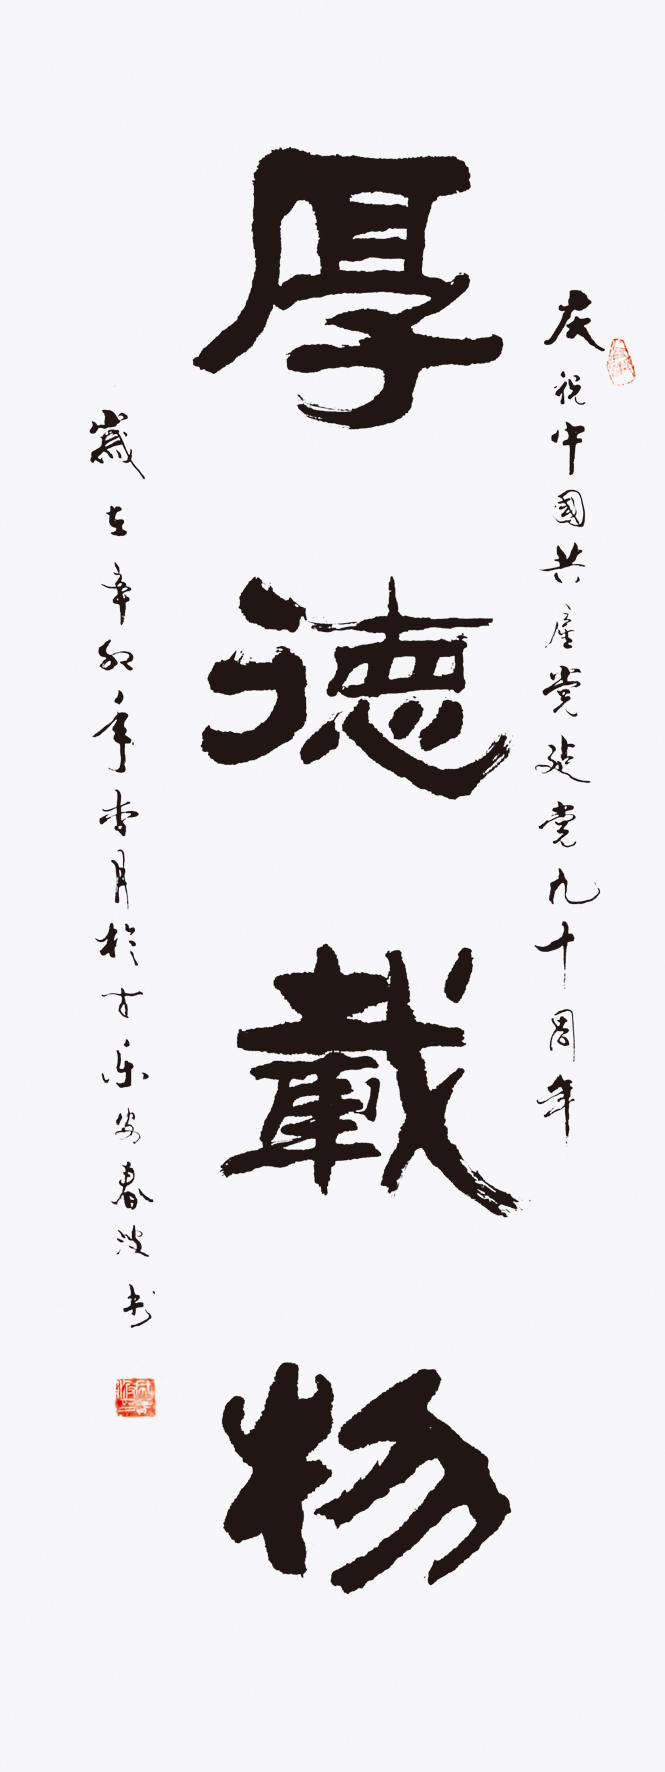 庆祝中國共産党建党九十周年
厚德載物
歲在辛卯年杏月於古乐安春波书